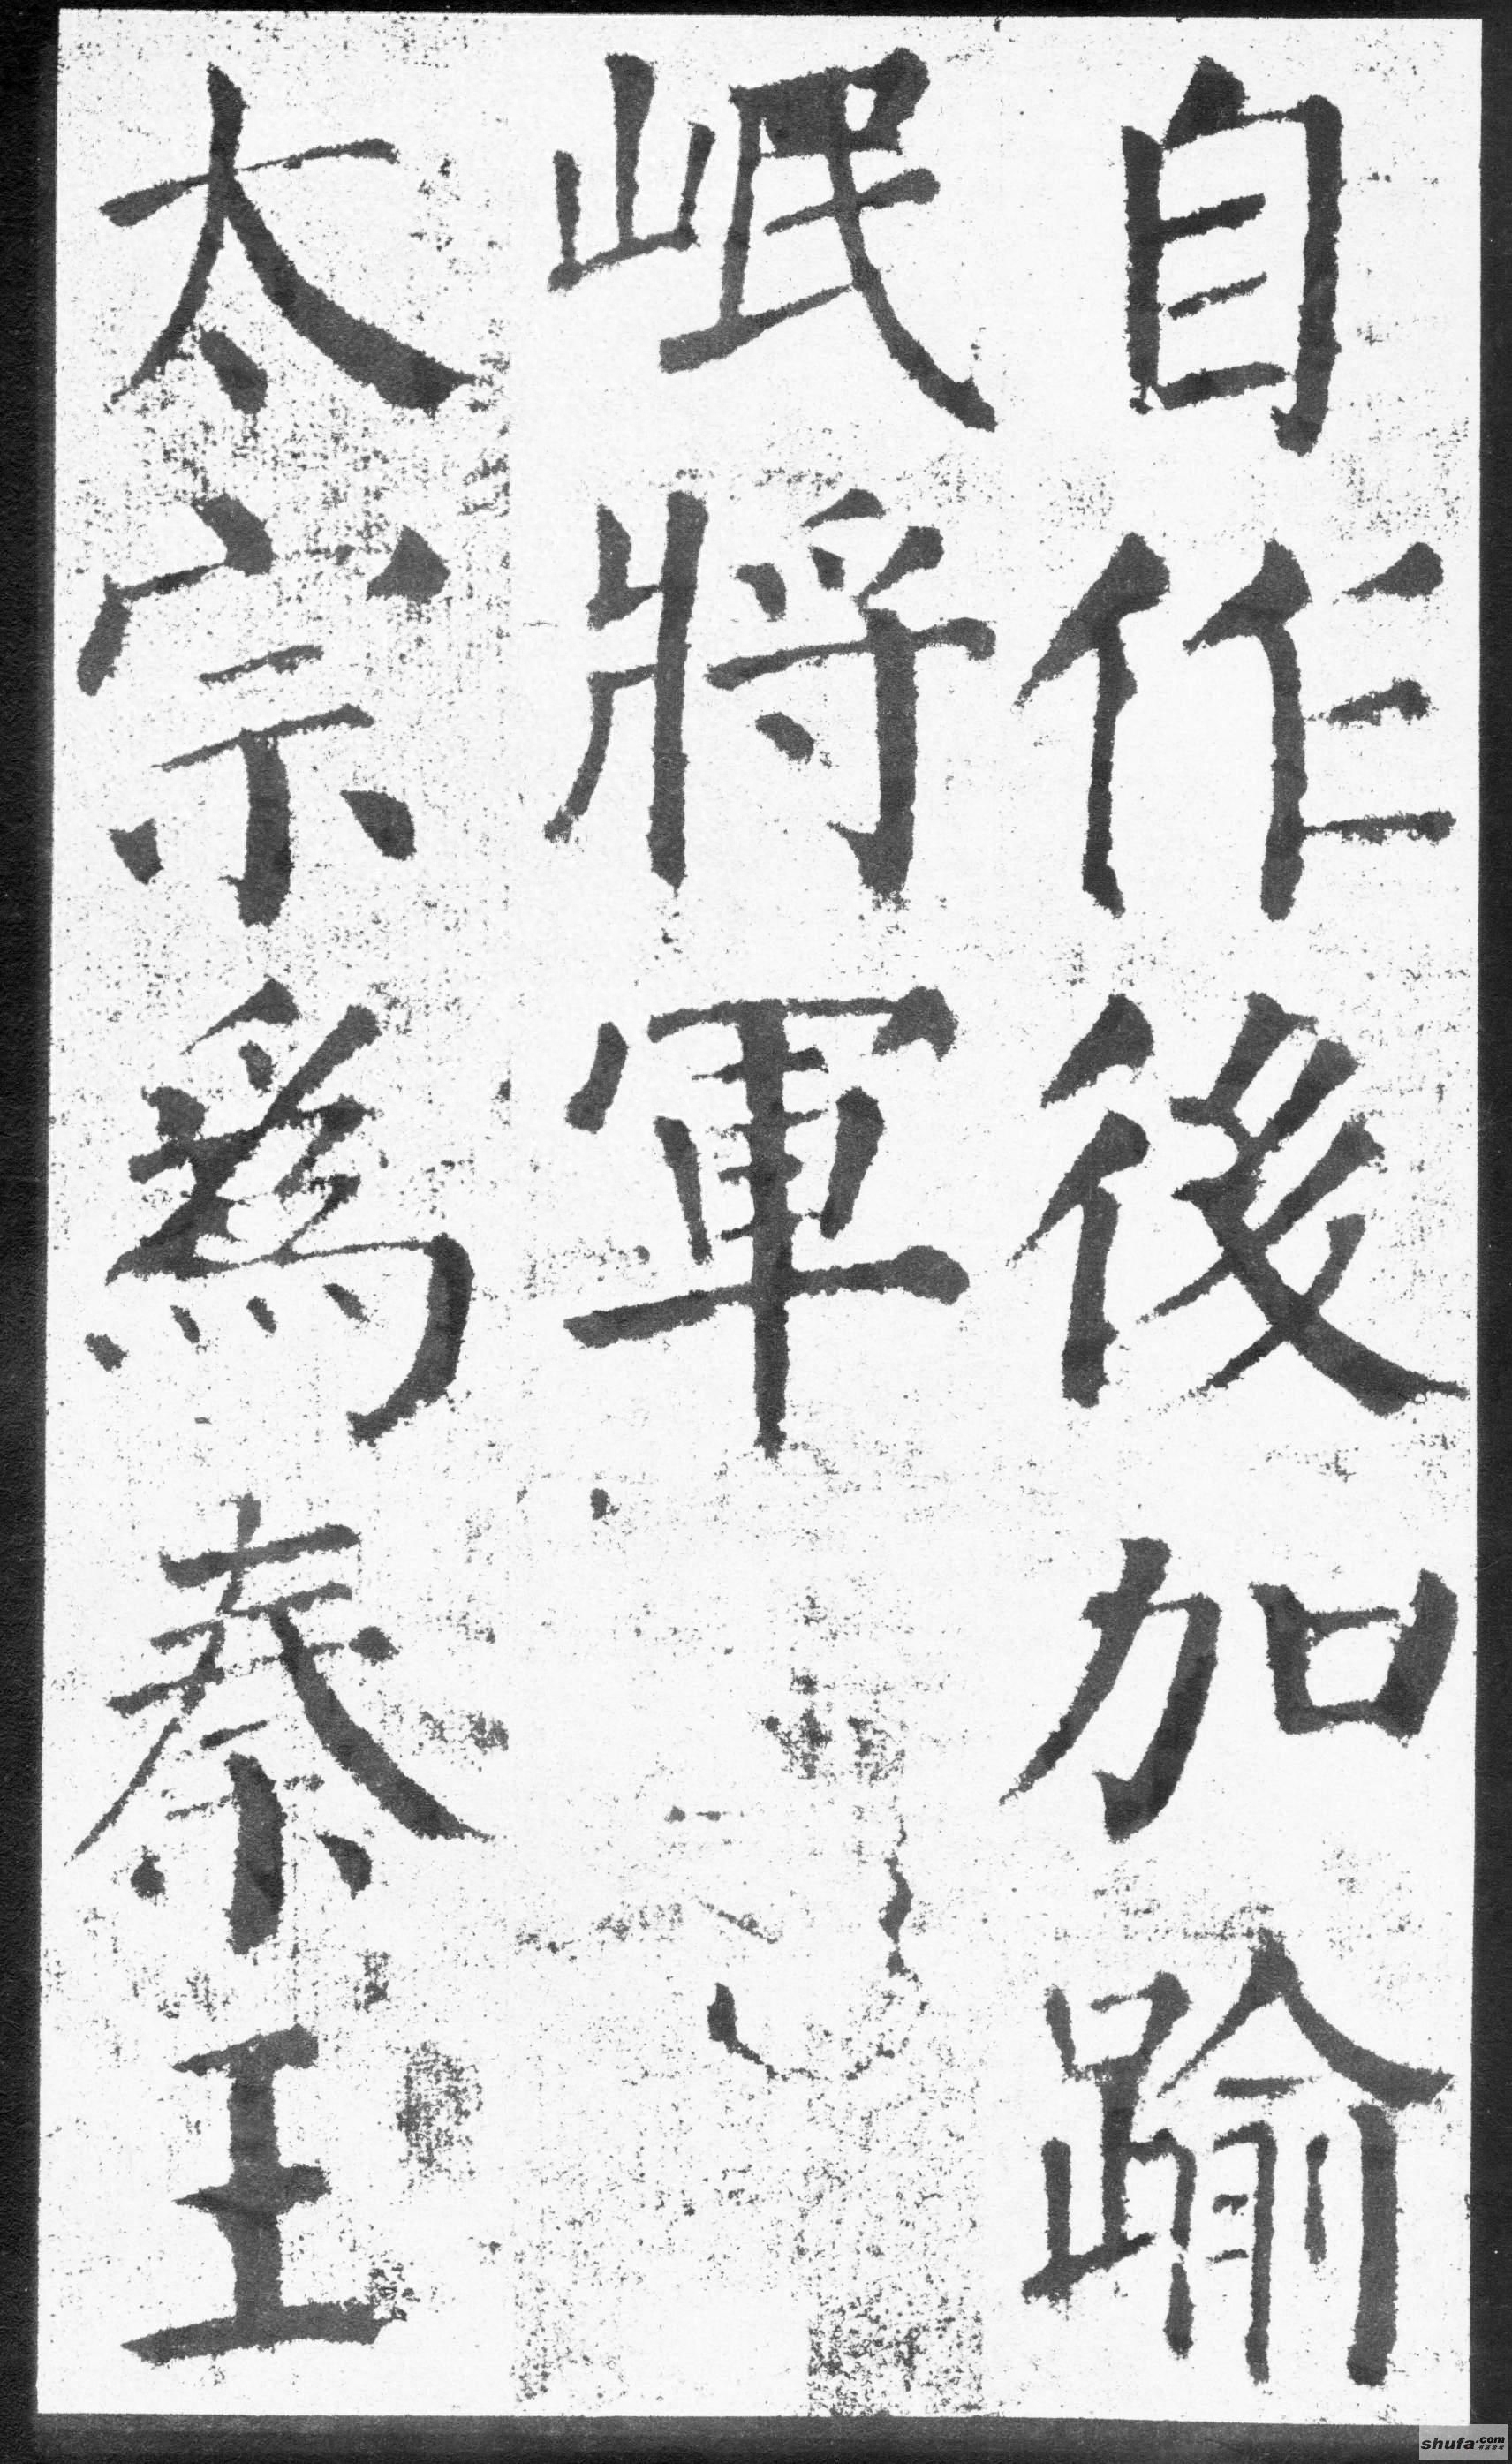 自作後加踰
岷將軍
太宗爲秦王
shufa.com